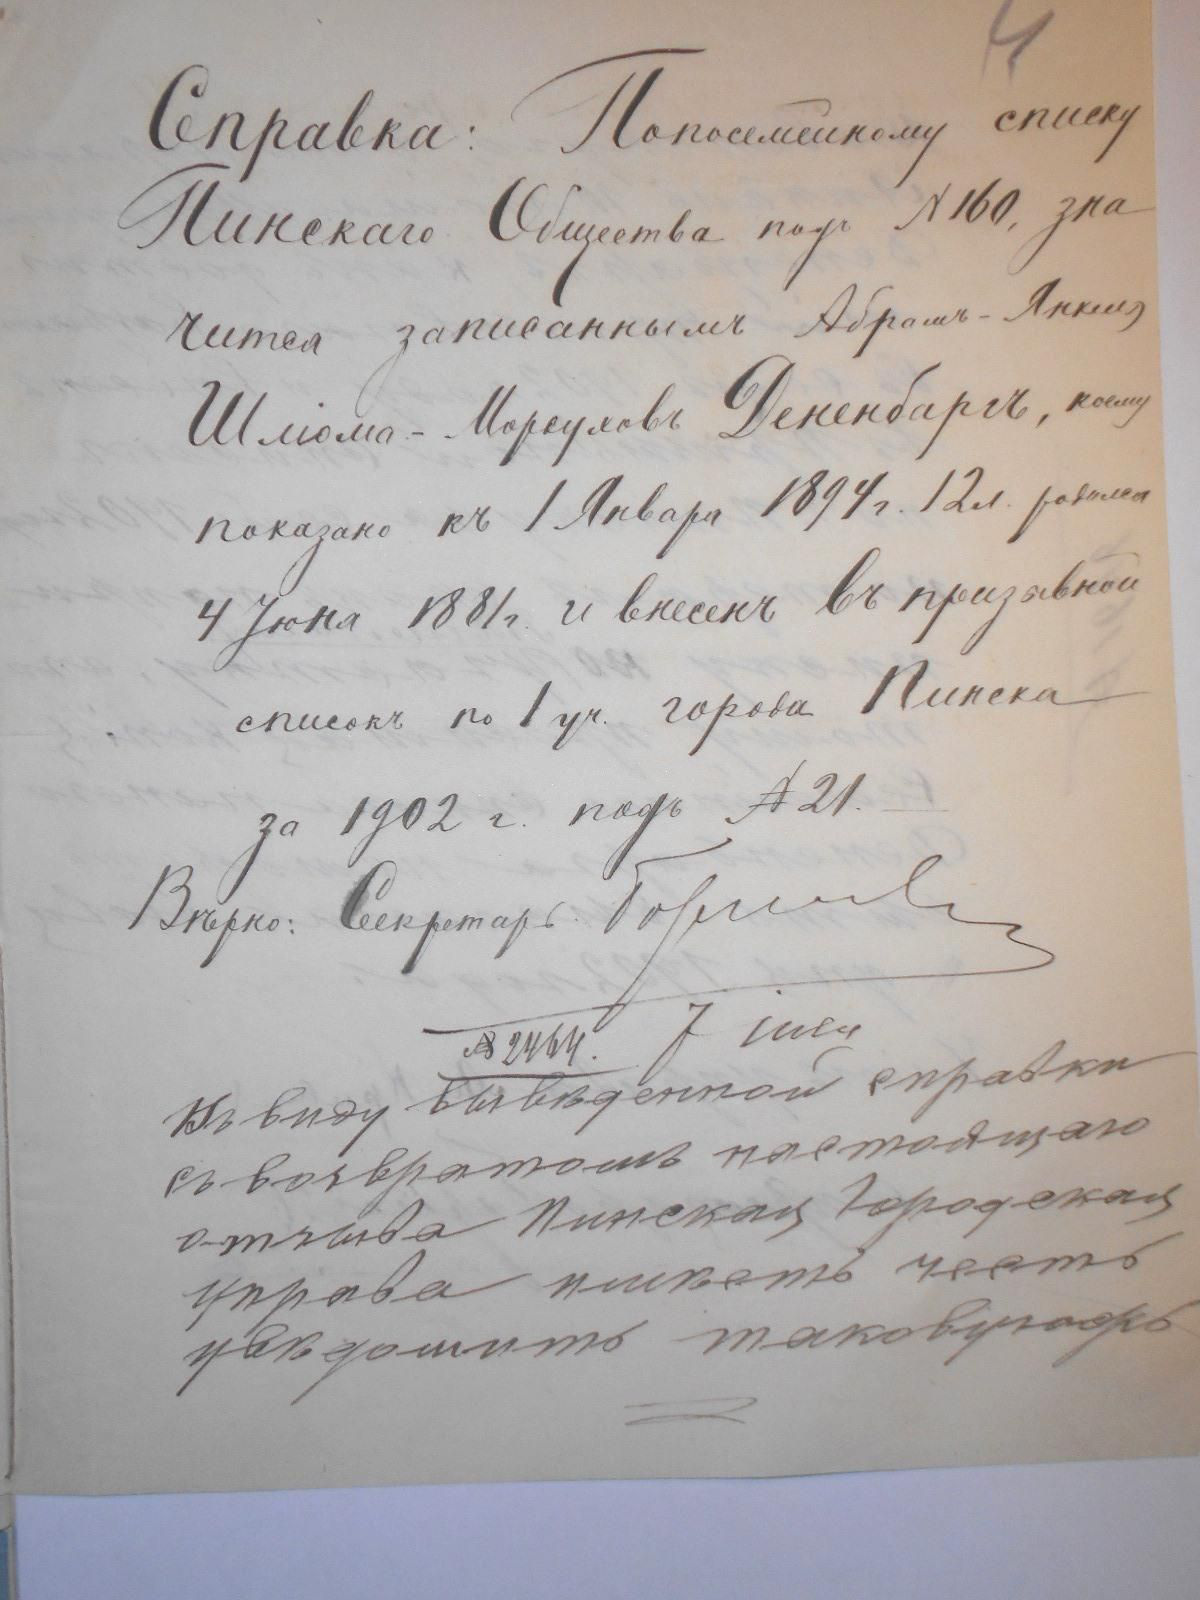 4
Справка: Попосемейному списку
Пинскаго Общества подъ №160, зна
чится записаннымъ Абрамъ-Янкель
Шліома-Мордуховъ Дененбаргъ, коему
показано къ 1 Января 1894 г. 12 л. родился
4 Іюня 1881 г. и внесенъ въ призывной
списокъ по 1 уч. города Пинска
за 1902 г. подъ № 21.
Вѣрно: Секретарь
№ 2464. 7 іюля
Въ виду вывѣденной справки
съ возвратомъ настоящаго
отзыва Пинская Городская
Управа имѣетъ честь
увѣдомить таковую